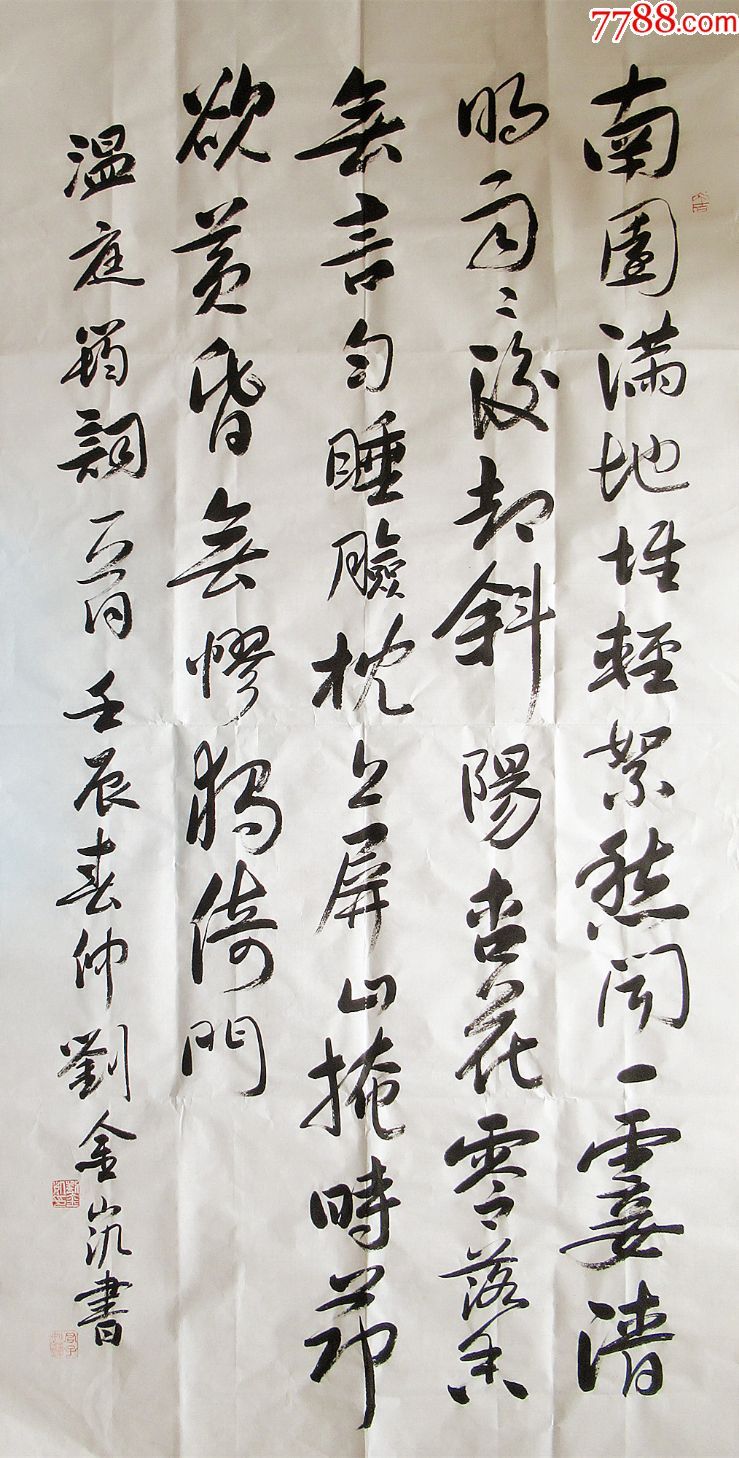 7788.com
南園满地堆輕絮愁闻一霎清
明雨〻後却斜陽杏花零落香
無言匀睡臉枕上屏山掩時節
欲黄昏無憀獨倚門
溫庭筠詞一首壬辰春仲劉金書